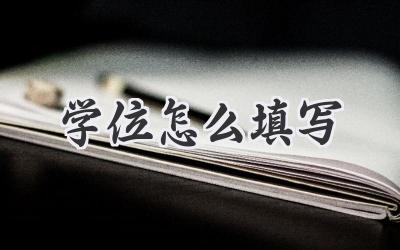 学位怎么填写